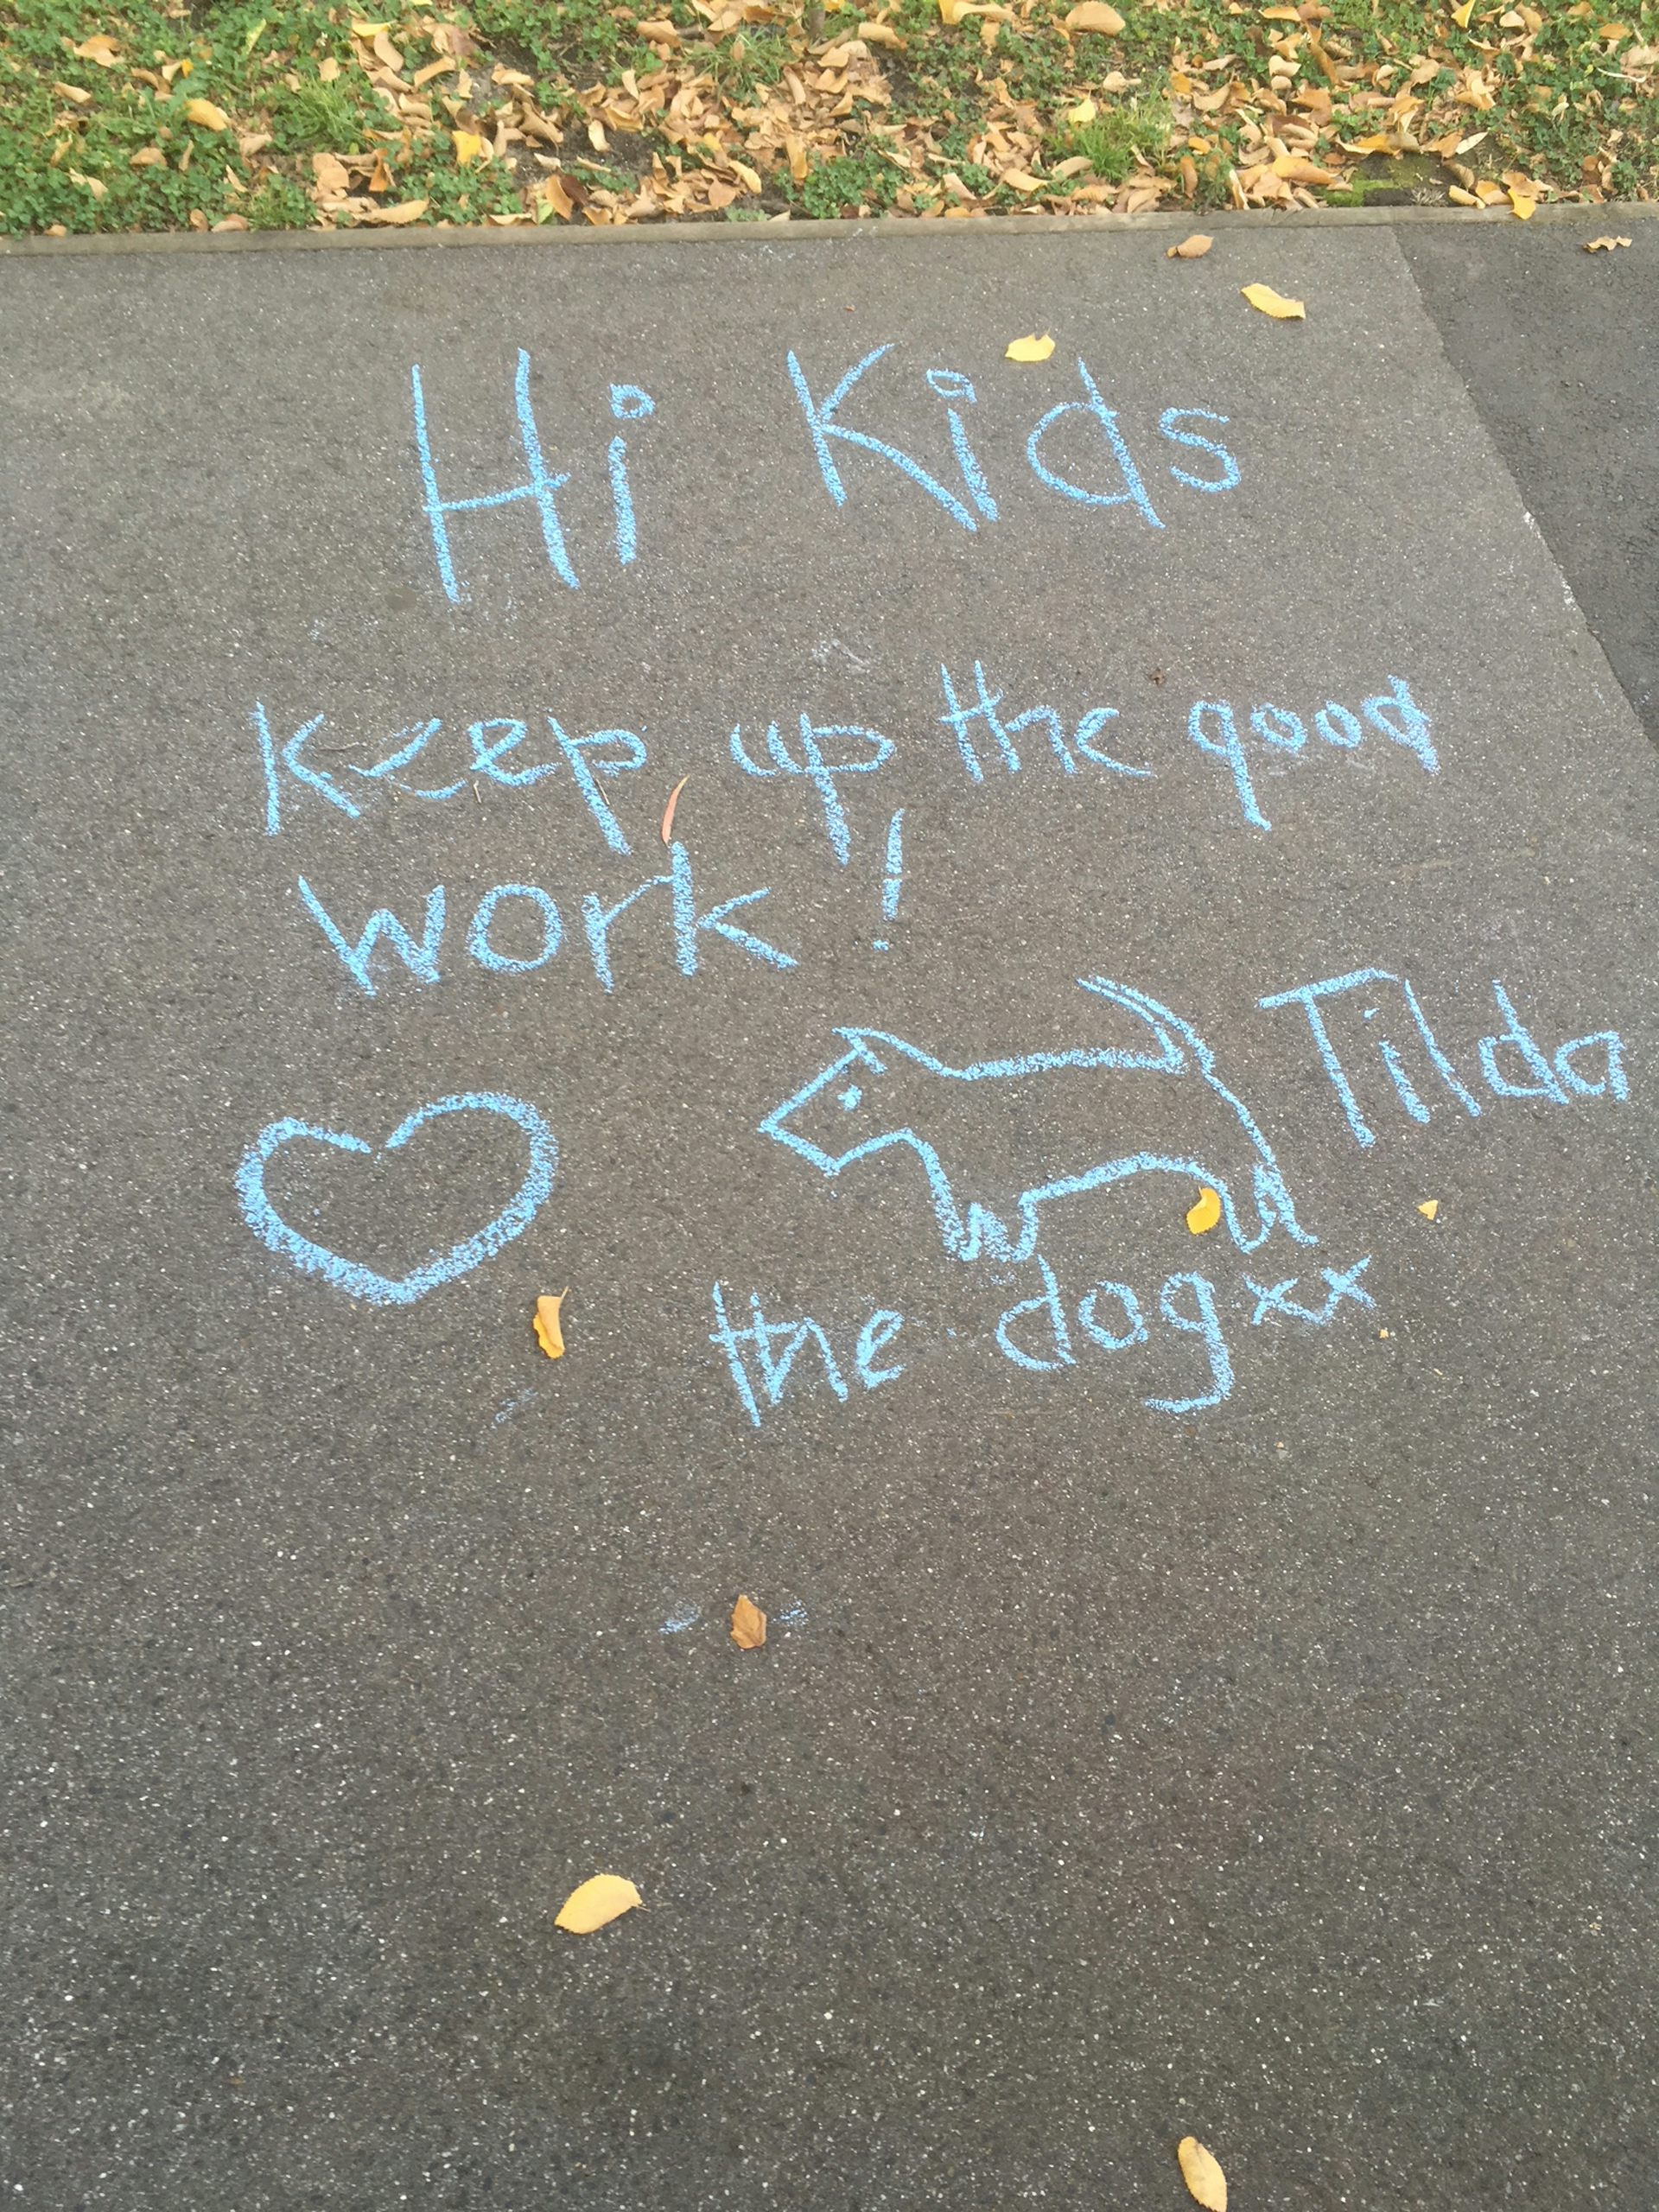 Hi Kids
Keep up the good
work!
Tilda
the dog xx